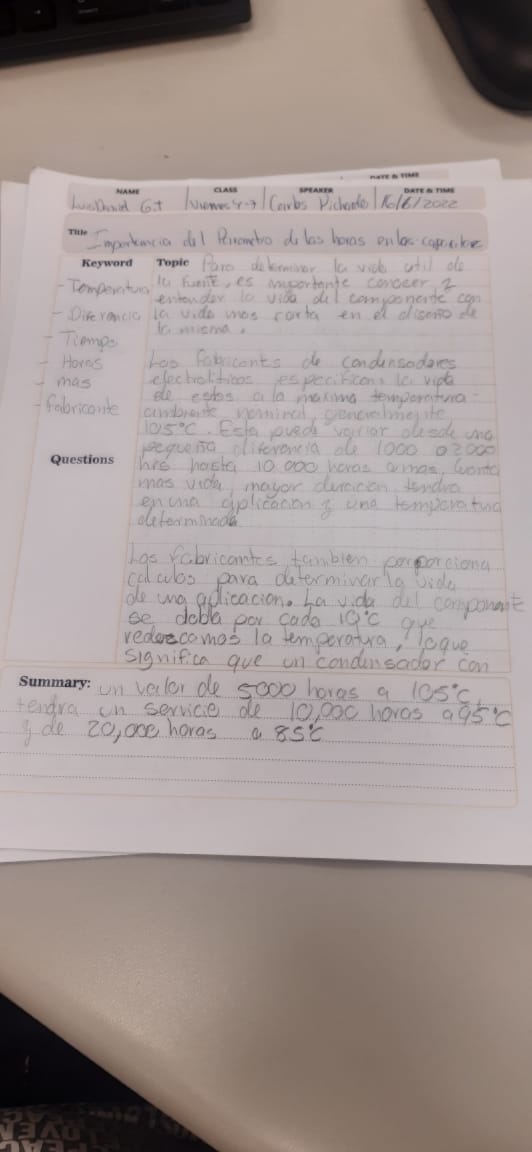 DATE & TIME
NAME CLASS SPEAKER DATE & TIME
Luis Daniel G.t Viernes 4-7 Carlos Pichardo 16/6/2022
Title Importancia del Parametro de las horas en los
Keyword
- Temperatura
- Diferencia
- Tiempo
- Horas
- mas
- fabricante
Questions
Topic Para determinar la vida util de
la fuente, es importante conocer y
entender la vida del componente con
la vida mas corta en el diseño de
la misma.
Los fabricantes de condensadores
electroliticos especifican la vida
de estos a la maxima temperatura
ambiente nominal, generalmente
105°C. Esta puede variar desde una
pequeña diferencia de 1000 o 2000
hrs hasta 10 000 horas o mas,
mas vida, mayor duracion tendra
en una aplicacion y una temperatura
determinada
Los fabricantes tambien
calculos para determinar la vida
de una aplicacion. La vida del componente
se dobla por cada 10°C que
la temperatura, lo que
significa que un condensador con
Summary: un valor de 5000 horas a 105°C,
tendra un servicio de 10,000 horas a 95°C
y de 20,000 horas a 85°C